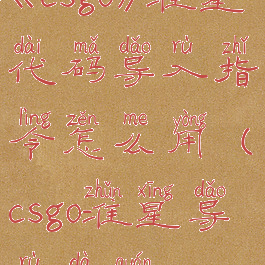 《csgo》准星
dài mǎ dǎo rù zhǐ
代码导入指
lìng zěn me yòng
令怎么用（
zhǔn xīng dǎo
csgo准星导
rù dà quán